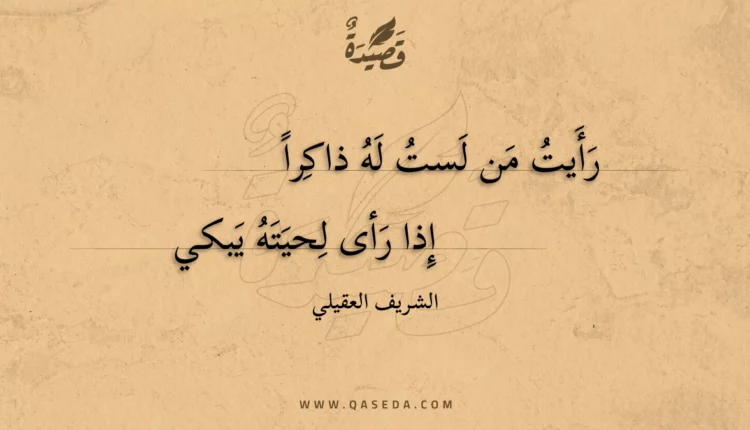 قَصِيْدَةٌ
رَأَيتُ مَن لَستُ لَهُ ذاكِراً
إِذا رَأى لِحيَتَهُ يَبكي
الشريف العقيلي
WWW.QASEDA.COM